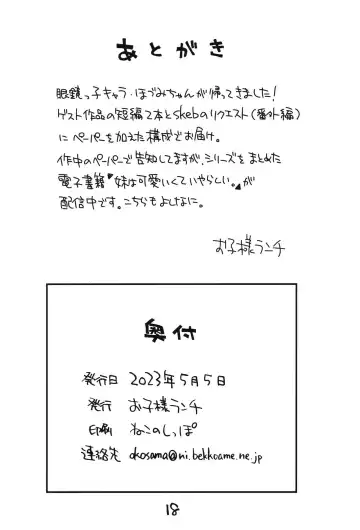 あとがき
眼鏡っ子キャラ・ほづみちゃんが帰ってきました!
ゲスト作品の短編2本とskebのリクエスト(番外編)
にペーパーを加えた構成でお届け。
作中のペーパーで告知してますが、シリーズをまとめた
電子書籍『妹は可愛いくていやらしい。』が
配信中です。こちらもよしなに。
お子様ランチ
奥付
発行日 2023年5月5日
発行 お子様ランチ
印刷 ねこのしっぽ
連絡先 okosama@ni.bekkoame.ne.jp
18